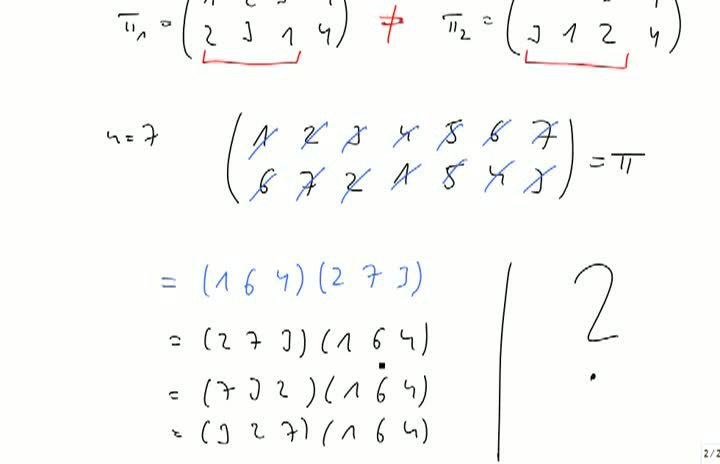 π₁ = ( 2 3 1 4 ) ≠ π₂ = ( 3 1 2 4 )
n = 7 ( 1 2 3 4 5 6 7
6 7 2 1 5 4 3 ) = π
= (1 6 4)(2 7 3)
?
= (2 7 3)(1 6 4)
= (7 3 2)(1 6 4)
= (3 2 7)(1 6 4)
2/2